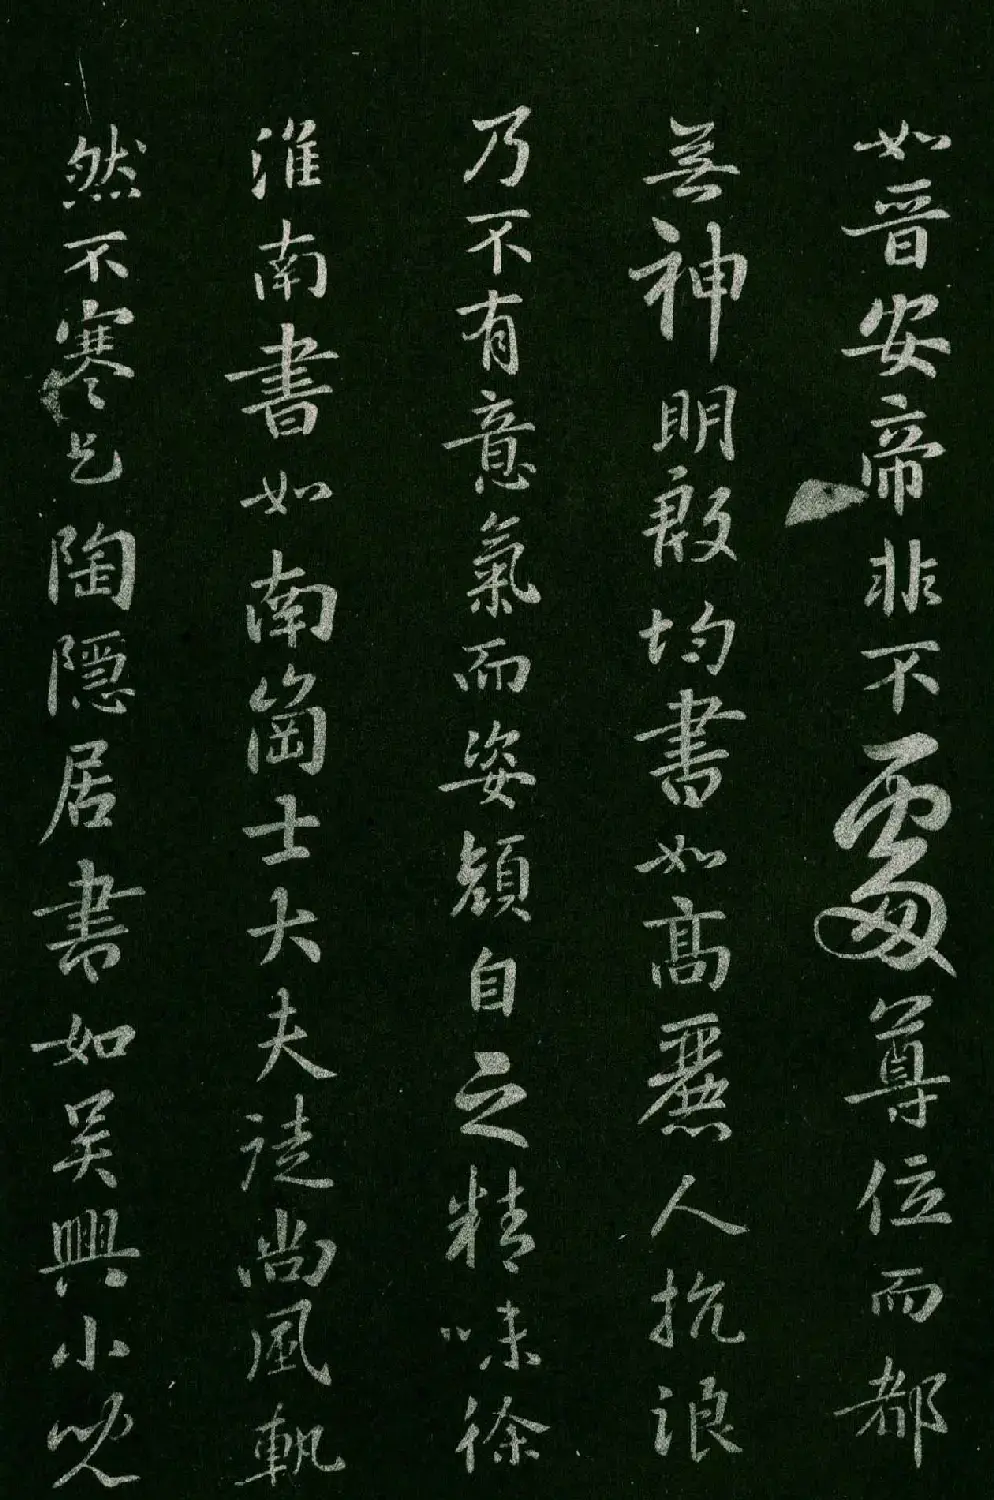 如晉安帝非不處尊位而都
無神明殷均書如高麗人抗浪
乃不有意氣而姿顏自之精味徐
淮南書如南崗士大夫徒尚風軌
然不寒乞陶隱居書如吳興小兒